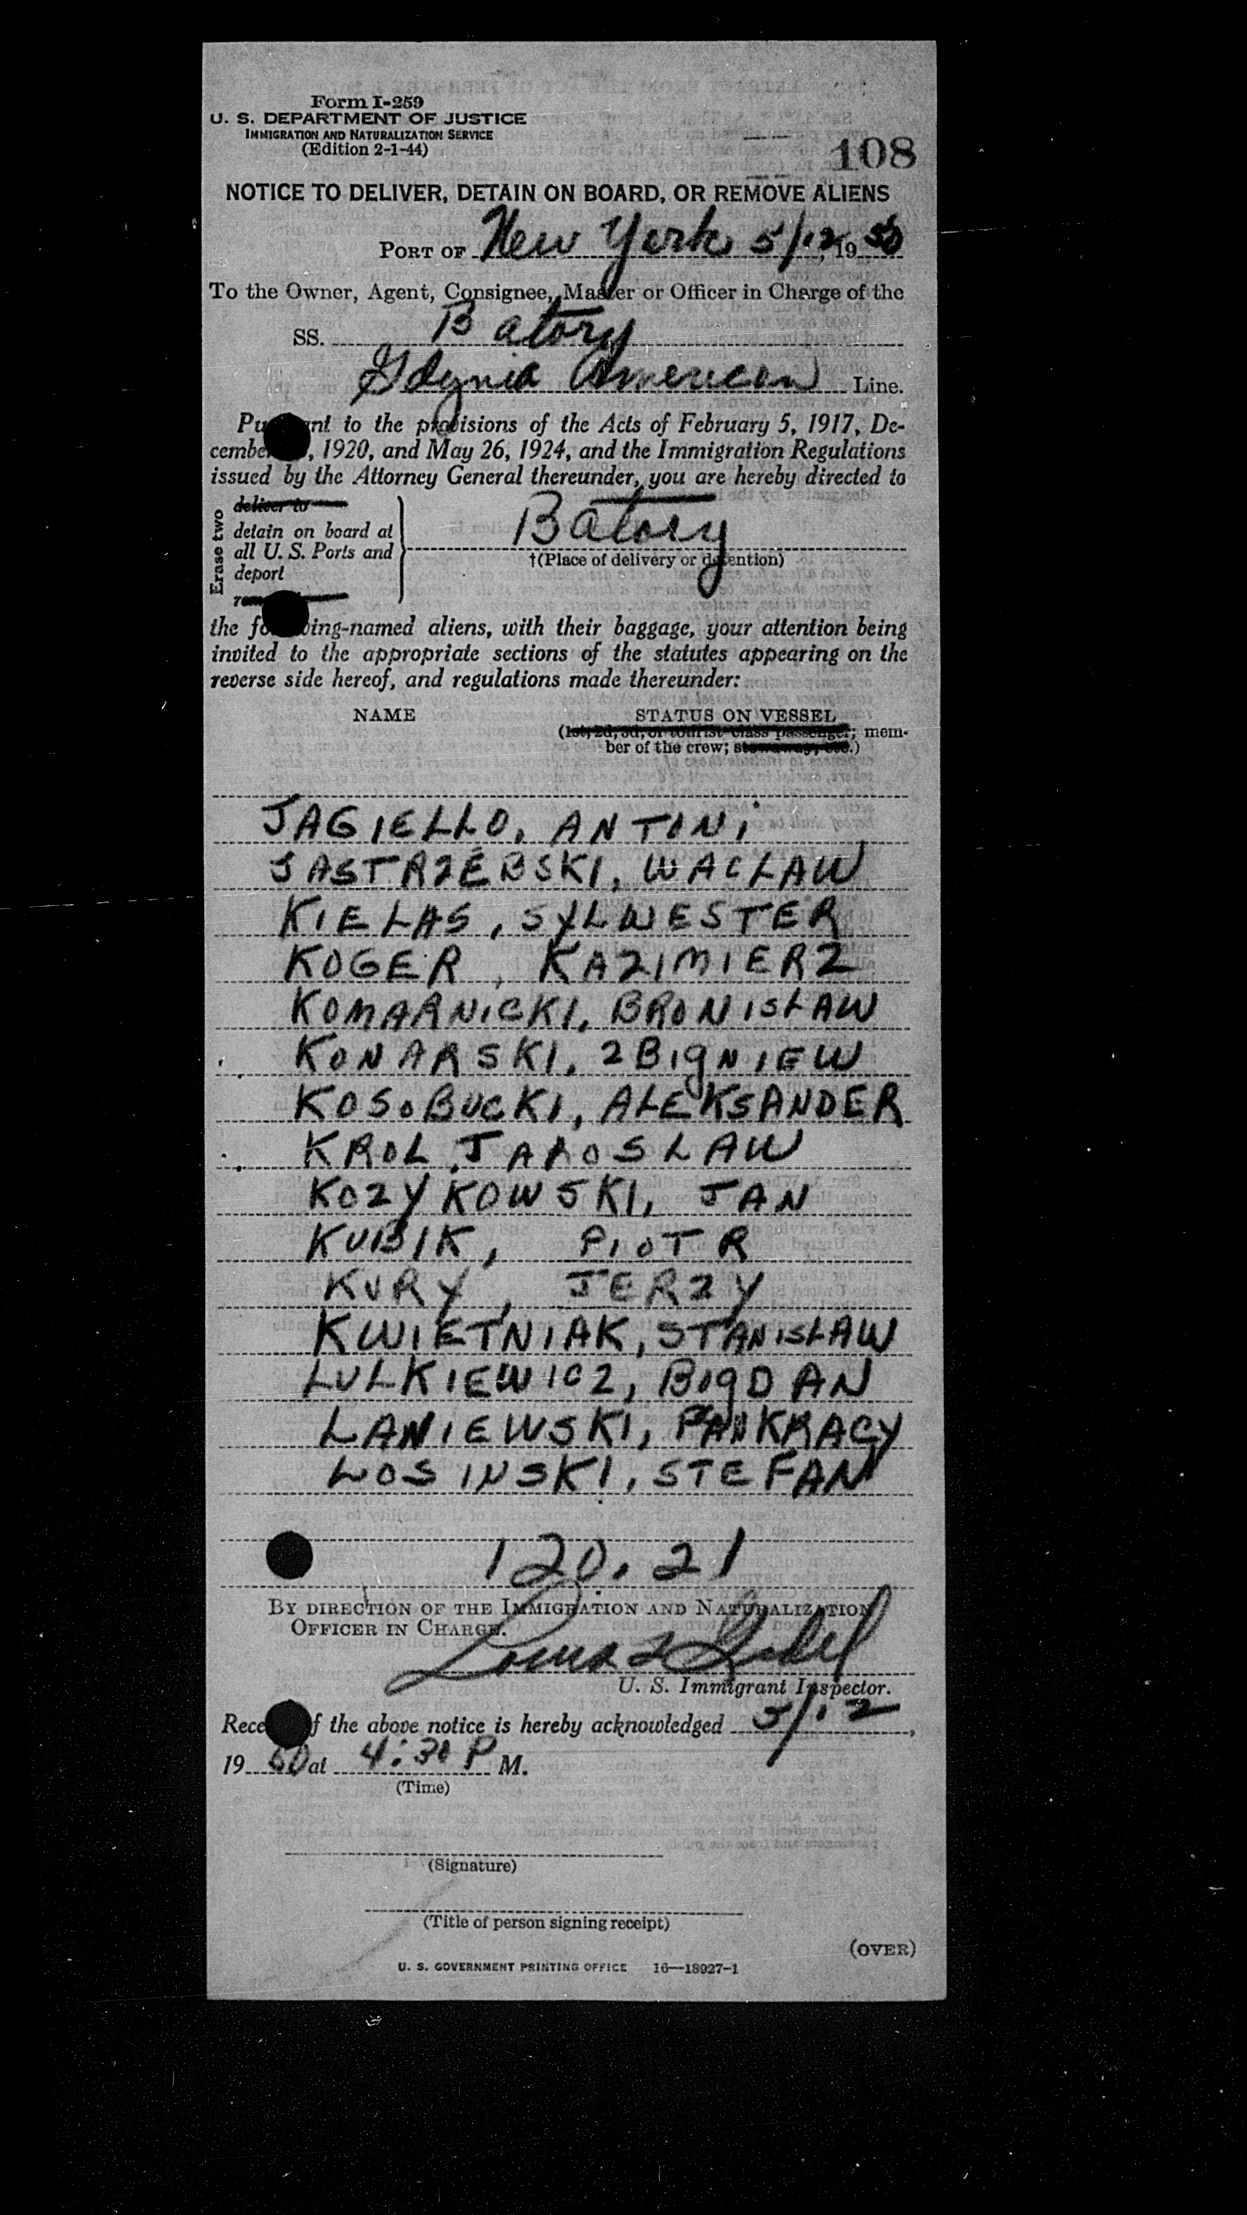 Form I-259
U. S. DEPARTMENT OF JUSTICE
IMMIGRATION AND NATURALIZATION SERVICE
(Edition 2-1-44)
108
NOTICE TO DELIVER, DETAIN ON BOARD, OR REMOVE ALIENS
PORT OF New York 5/12, 1950
To the Owner, Agent, Consignee, Master or Officer in Charge of the
SS. Batory
Gdynia American Line.
Pu nt to the provisions of the Acts of February 5, 1917, De-
cembe , 1920, and May 26, 1924, and the Immigration Regulations
issued by the Attorney General thereunder, you are hereby directed to
Erase two
deliver to
detain on board at
all U. S. Ports and
deport
Batory
†(Place of delivery or detention)
the fo ing-named aliens, with their baggage, your attention being
invited to the appropriate sections of the statutes appearing on the
reverse side hereof, and regulations made thereunder:
NAME STATUS ON VESSEL
(1st, 2d, 3d, or tourist-class passenger; mem-
ber of the crew; stowaway, etc.)
JAGIELLO, ANTONi
JASTRZEBSKI, WACLAW
KIELAS, SYLWESTER
KOGER, KAZIMIERZ
KOMARNICKI, BRONISLAW
KONARSKI, ZBIgNIEW
KOSOBUCKI, ALEKSANDER
KROL, JAROSLAW
KOZYKOWSKI, JAN
KUBIK, PIOTR
KURY, JERZY
KWIETNIAK, STANISLAW
LULKIEWICZ, BOgDAN
LANIEWSKI, PANKRACY
LOSINSKI, STEFAN
120.21
BY DIRECTION OF THE IMMIGRATION AND NATURALIZATION
OFFICER IN CHARGE.
U. S. Immigrant Inspector.
Rece f the above notice is hereby acknowledged 5/12,
1950 at 4:30 P M.
(Time)
(Signature)
(Title of person signing receipt)
(OVER)
U. S. GOVERNMENT PRINTING OFFICE 16—18927-1